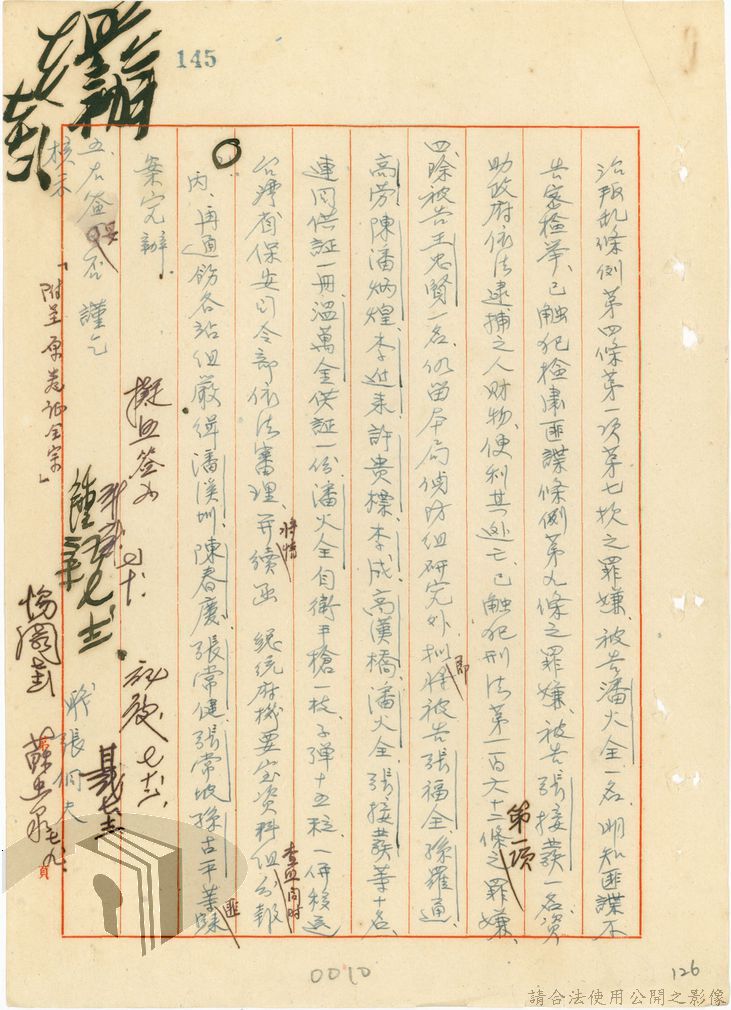 145
治叛乱條例第四條第一項第七欵之罪嫌、被告潘火全一名、明知匪諜不
告密檢举、已触犯檢肅匪諜條例第九條之罪嫌、被告張接蕻一名、資
助政府依法逮捕之人財物、便利其逃亡、已触犯刑法第一百六十二條之罪嫌、
第一項
四、除被告王忠賢一名、仍留本局偵防組研究外、拟將被告張福全、孫羅通、
即
高劳、陳潘炳煌、李进来、許貴標、李成、高漢橋、潘火全、張接蕻等十名、
連同供証一冊、溫萬金供証一份、潘火全自衛手槍一枝、子彈十五粒、一併移送
台灣省保安司令部依法審理、并續函 總統府機要室資料組
將情
查照同时
內、再通飭各站組嚴緝潘溪圳、陳春慶、張常健、張常坡、孫古平等
匪
案完辦
五、右签 否 謹乞
妥
核示
「附呈原卷证全宗」
擬照签办
職張
0010
126
請合法使用公開之影像